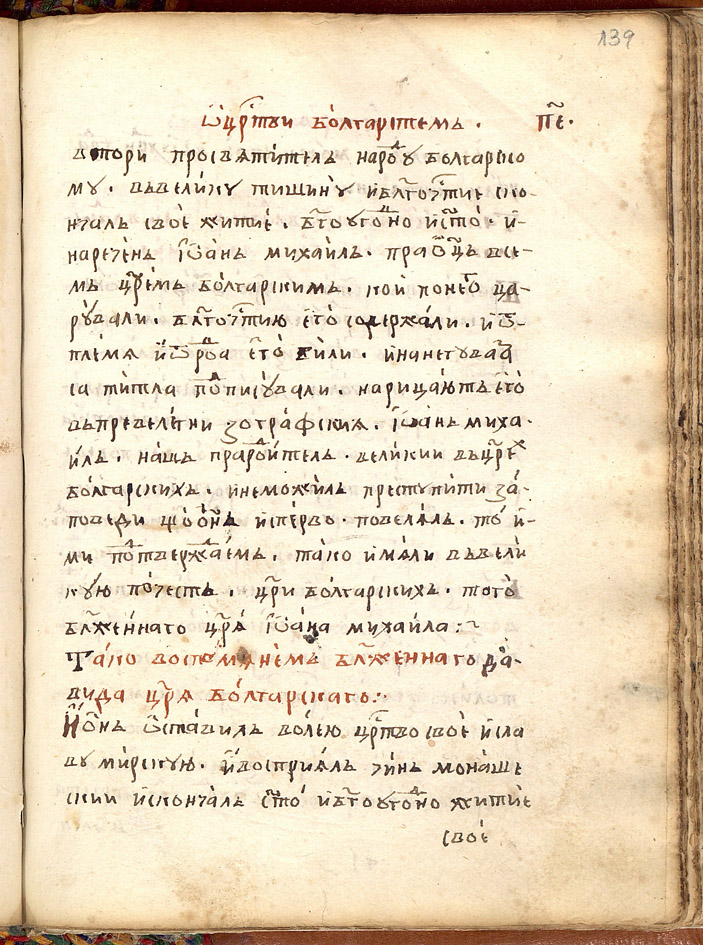 139
Ѡ црⷭ҇тви болгарстемъ · п҃е ·
втори просвѧтитель народⷣу болгарско
му · въ велику тишину и блг҃очⷭ҇тие ско-
нчаль свое житие · бг҃оугоⷣно и ст҃о · и-
наречень Іѡань михаиль · праѿц҃ъ все-
мъ цр҃емъ болгарскимъ · кои по нег҃о ца-
рували · блг҃очⷭ҇тию ег҃о содержали · и ѿ
племѧ и ѿ роⷣа ег҃о били · и на негува
са титла поⷣписували · нарицають ег҃о
въ превелегни зографскиѧ · Іѡань миха-
иль · нашъ прароⷣитель · великии въ цр҃еⷯ
болгарскихъ · и не можиль преступити за-
поведи що ѡнъ исперво · повелѧль · то и-
ми поⷣтвержⷣаемъ · тако имѧли въ вели
кую почесть · цр҃и болгарскихъ · того
блж҃еннаго цр҃ѧ Іѡана михаила :~
Тако воспомѧнемъ блж҃еннаго да-
вида цр҃ѧ болгарскаго :·
И ѡнь ѡставиль волею црⷭ҇тво свое и сла
ву мирскую · и восприѧль чинь монаше
скии и скончаль ст҃о и бг҃оугоⷣно житие
свое